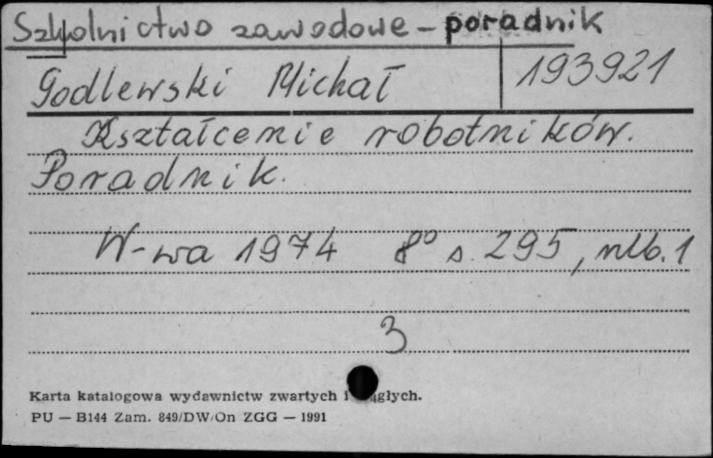 Szkolnictwo zawodowe - poradnik
Godlewski Michał 193921
Kształcenie robotników.
Poradnik.
W-wa 1974 8° s. 295, nlb. 1
3
Karta katalogowa wydawnictw zwartych i
PU — B144 Zam. 849/DW/On ZGG — 1991